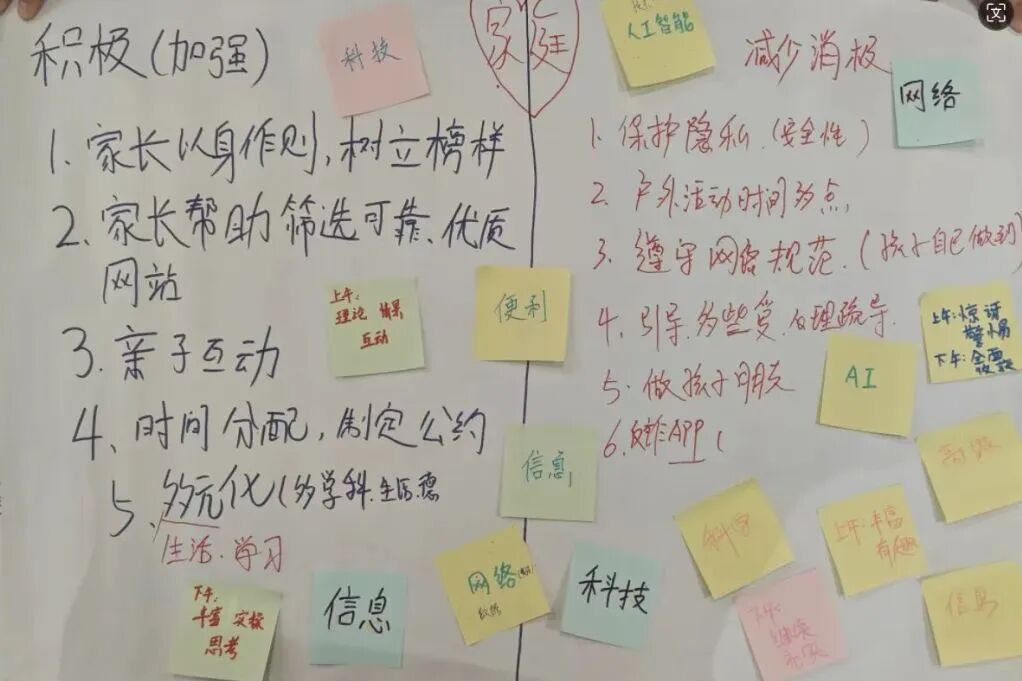 积极(加强)
1. 家长以身作则,树立榜样
2. 家长帮助筛选可靠、优质
网站
3. 亲子互动
4、时间分配,制定公约
5、多元化(多学科.生活.德
生活.学习
家庭
减少消极
1. 保护隐私.(安全性)
2. 户外活动时间多点,
3. 遵守网络规范.(孩子自己做到)
4. 引导.多些爱.心理疏导.
5. 做孩子朋友
6. 反诈APP (
科技
人工智能
网络
上午:
理论 情景
互动
便利
上午:惊讶
警惕
下午:全面
收获
AI
信息
科学
上午:丰富
有趣
信息
下午:
丰富 实操
思考
信息
网络
科技
下午:
继续